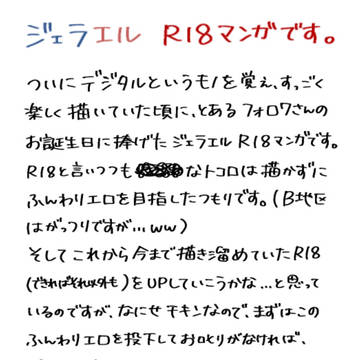 ジェラエル R18マンガです。
ついにデジタルというモノを覚え、すっごく
楽しく描いていた頃に、とあるフォロワさんの
お誕生日に捧げたジェラエルR18マンガです。
R18と言いつつも なトコロは描かずに
ふんわりエロを目指したつもりです。(B地区
はがっつりですが…ww)
そしてこれから今まで描き留めていたR18
(できればそれ以外も)をUPしていこうかな…と思って
いるのですが、なにせチキンなので、まずはこの
ふんわりエロを投下しておとがりがなければ、